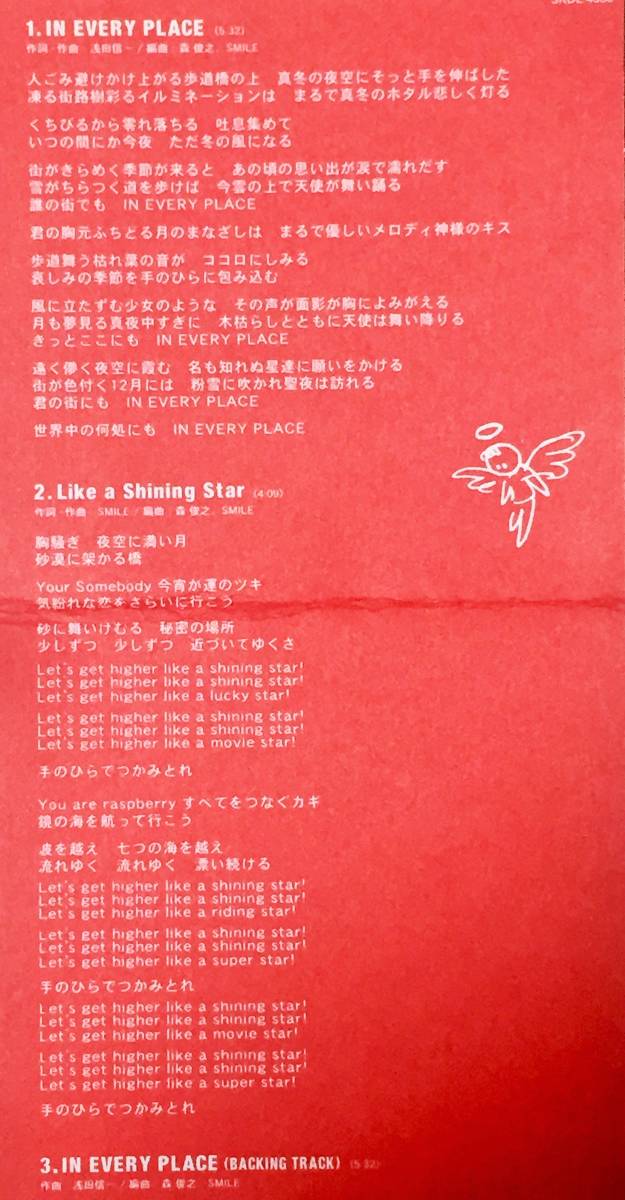 1. IN EVERY PLACE (5:32)
作詞・作曲 浅田信一/編曲 森 俊之、SMILE
人ごみ避けかけ上がる歩道橋の上 真冬の夜空にそっと手を伸ばした
凍る街路樹彩るイルミネーションは まるで真冬のホタル悲しく灯る
くちびるから零れ落ちる 吐息集めて
いつの間にか今夜 ただ冬の風になる
街がきらめく季節が来ると あの頃の思い出が涙で濡れだす
雪がちらつく道を歩けば 今雲の上で天使が舞い踊る
誰の街でも IN EVERY PLACE
君の胸元ふちどる月のまなざしは まるで優しいメロディ神様のキス
歩道舞う枯れ葉の音が ココロにしみる
哀しみの季節を手のひらに包み込む
風に立たずむ少女のような その声が面影が胸によみがえる
月も夢見る真夜中すぎに 木枯らしとともに天使は舞い降りる
きっとここにも IN EVERY PLACE
遠く儚く夜空に霞む 名も知れぬ星達に願いをかける
街が色付く12月には 粉雪に吹かれ聖夜は訪れる
君の街にも IN EVERY PLACE
世界中の何処にも IN EVERY PLACE
2. Like a Shining Star (4:09)
作詞・作曲 SMILE/編曲 森 俊之、SMILE
胸騒ぎ 夜空に満い月
砂漠に架かる橋
Your Somebody 今宵が運のツキ
気紛れな恋をさらいに行こう
砂に舞いけむる 秘密の場所
少しずつ 少しずつ 近づいてゆくさ
Let's get higher like a shining star!
Let's get higher like a shining star!
Let's get higher like a lucky star!
Let's get higher like a shining star!
Let's get higher like a shining star!
Let's get higher like a movie star!
手のひらでつかみとれ
You are raspberry すべてをつなぐカギ
鏡の海を航って行こう
波を越え 七つの海を越え
流れゆく 流れゆく 漂い続ける
Let's get higher like a shining star!
Let's get higher like a shining star!
Let's get higher like a riding star!
Let's get higher like a shining star!
Let's get higher like a shining star!
Let's get higher like a super star!
手のひらでつかみとれ
Let's get higher like a shining star!
Let's get higher like a shining star!
Let's get higher like a movie star!
Let's get higher like a shining star!
Let's get higher like a shining star!
Let's get higher like a super star!
手のひらでつかみとれ
3. IN EVERY PLACE (BACKING TRACK) (5:32)
作曲 浅田信一/編曲 森 俊之、SMILE